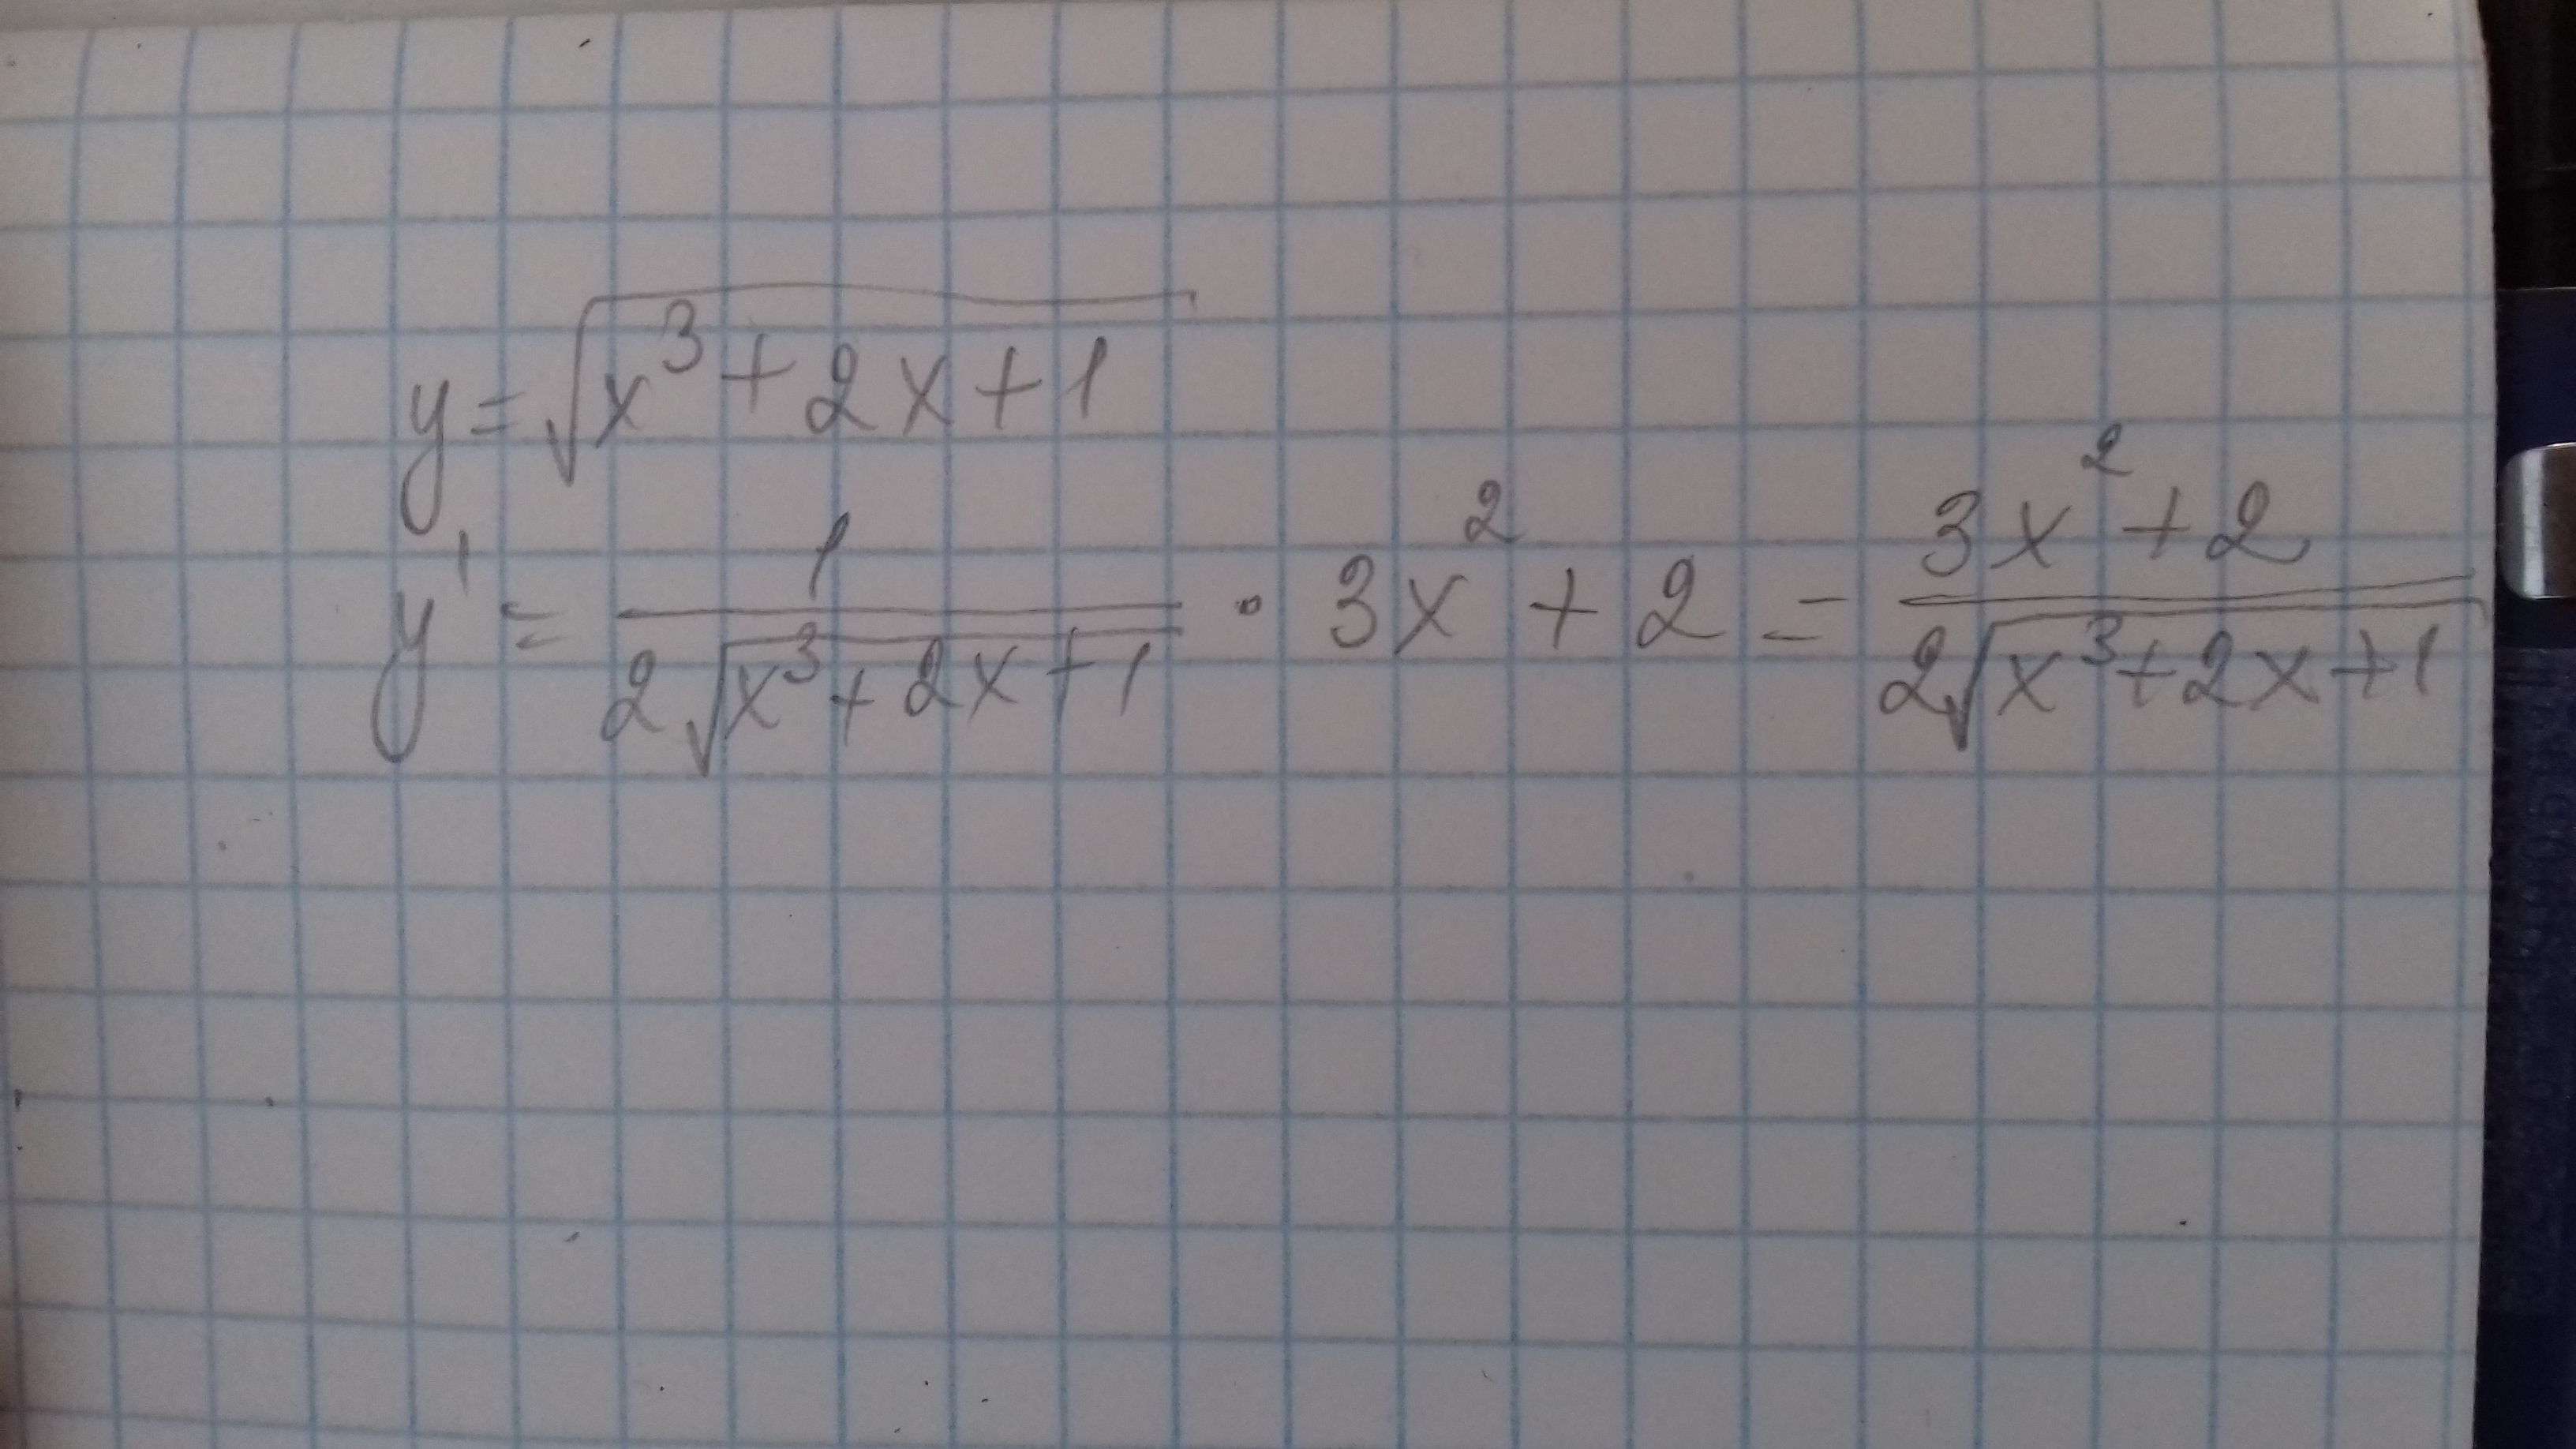 y = √(x³ + 2x + 1)
y' = 1/(2√(x³ + 2x + 1)) · 3x² + 2 = (3x² + 2)/(2√(x³ + 2x + 1))